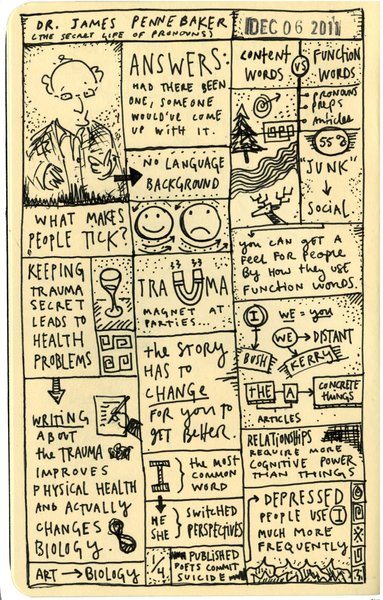 DR. JAMES PENNEBAKER
(THE SECRET LIFE OF PRONOUNS)
DEC 06 2011
ANSWERS:
HAD THERE BEEN
ONE, SOMEONE
WOULD'VE COME
UP WITH IT.
NO LANGUAGE
BACKGROUND
WHAT MAKES
PEOPLE TICK?
KEEPING
TRAUMA
SECRET
LEADS TO
HEALTH
PROBLEMS
TRAUMA
MAGNET AT
PARTIES
WRITING
ABOUT
THE TRAUMA
IMPROVES
PHYSICAL HEALTH
AND ACTUALLY
CHANGES
BIOLOGY.
ART → BIOLOGY
the STORY
HAS TO
CHANGE
FOR YOU TO
GET BETTER.
I } the MOST
COMMON
WORD
HE
SHE } SWITCHED
PERSPECTIVES
4 PUBLISHED
POETS COMMIT
SUICIDE
CONTENT
WORDS
VS
FUNCTION
WORDS
PRONOUNS
PREPS
Articles
55%
"JUNK"
↓
SOCIAL
you CAN GET A
FEEL FOR PEOPLE
BY HOW THEY USE
FUNCTION WORDS.
I WE = you
WE → DISTANT
BUSH KERRY
THE A → CONCRETE
THINGS
ARTICLES
RELATIONSHIPS
REQUIRE MORE
COGNITIVE POWER
THAN THINGS
DEPRESSED
PEOPLE USE I
MUCH MORE
FREQUENTLY